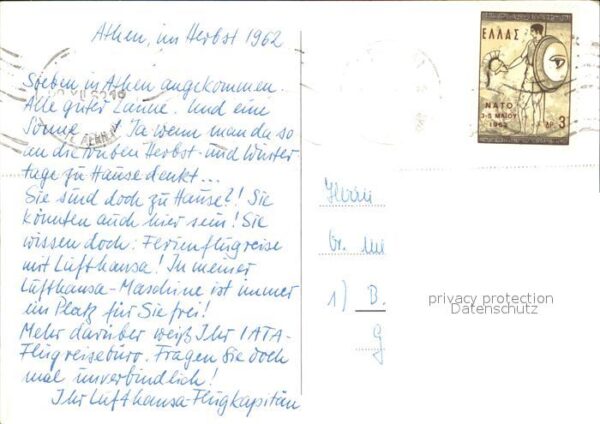 Athen, im Herbst 1962
Soeben in Athen angekommen.
Alle guter Laune. Und eine
Sonne ! Ja wenn man da so
an die trüben Herbst- und Winter
tage zu Hause denkt...
Sie sind doch zu Hause?! Sie
könnten auch hier sein! Sie
wissen doch: Ferienflugreise
mit Lufthansa! In meiner
Lufthansa-Maschine ist immer
ein Platz für Sie frei!
Mehr darüber weiß Ihr IATA-
Flugreisebüro. Fragen Sie doch
mal unverbindlich!
Ihr Lufthansa-Flugkapitän
ΕΛΛΑΣ
ΝΑΤΟ
3-5 ΜΑΪΟΥ
1962
ΔΡ. 3
Herrn
Dr.
1) B.
G
privacy protection
Datenschutz